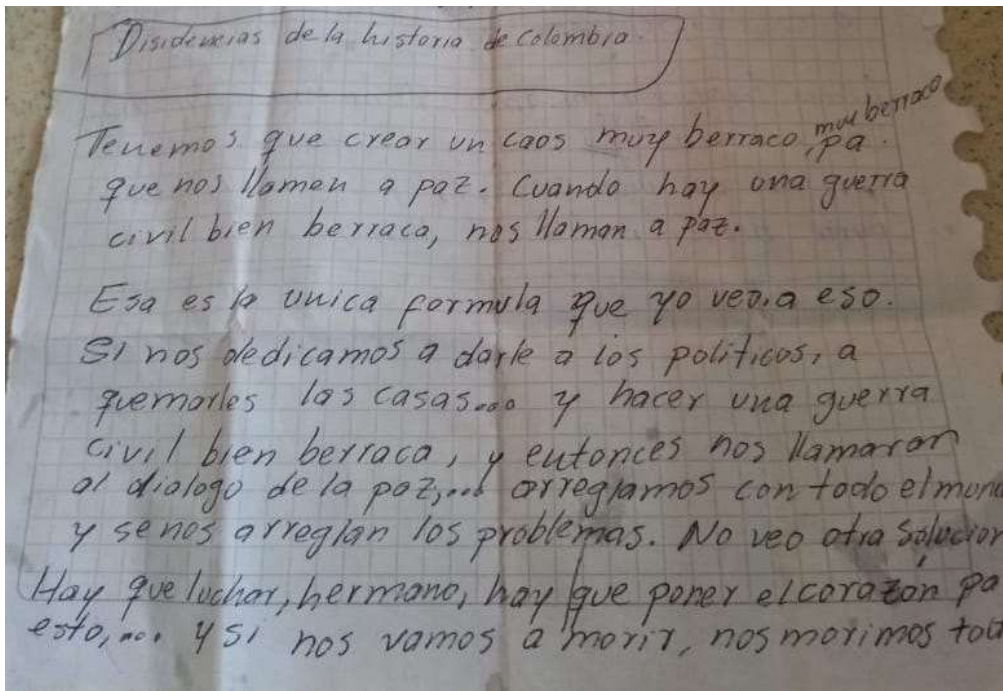 Disidencias de la historia de Colombia.
Tenemos que crear un caos muy berraco, muy berraco pa
que nos llamen a paz. Cuando hay una guerra
civil bien berraca, nos llaman a paz.
Esa es la unica formula que yo veo.a eso.
Si nos dedicamos a darle a los politicos, a
quemarles las casas... y hacer una guerra
civil bien berraca, y entonces nos llamaran
al dialogo de la paz,... arreglamos con todo el mun
y se nos arreglan los problemas. No veo otra solucion
Hay que luchar, hermano, hay que poner el corazón pa
esto,... y si nos vamos a morir, nos morimos tod